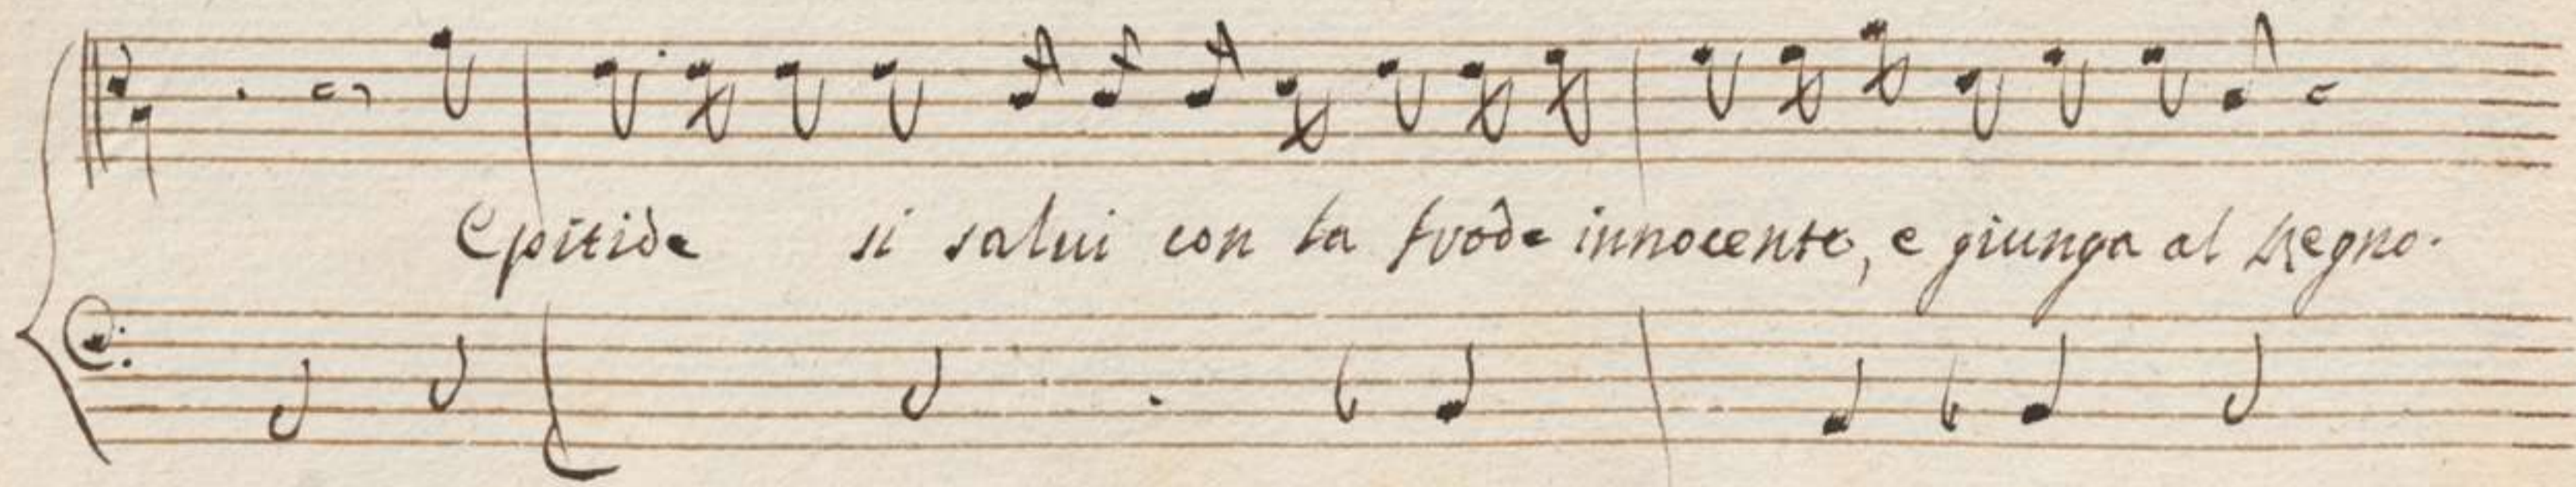 Epitide si salui con la frode innocente, e giunga al Regno.